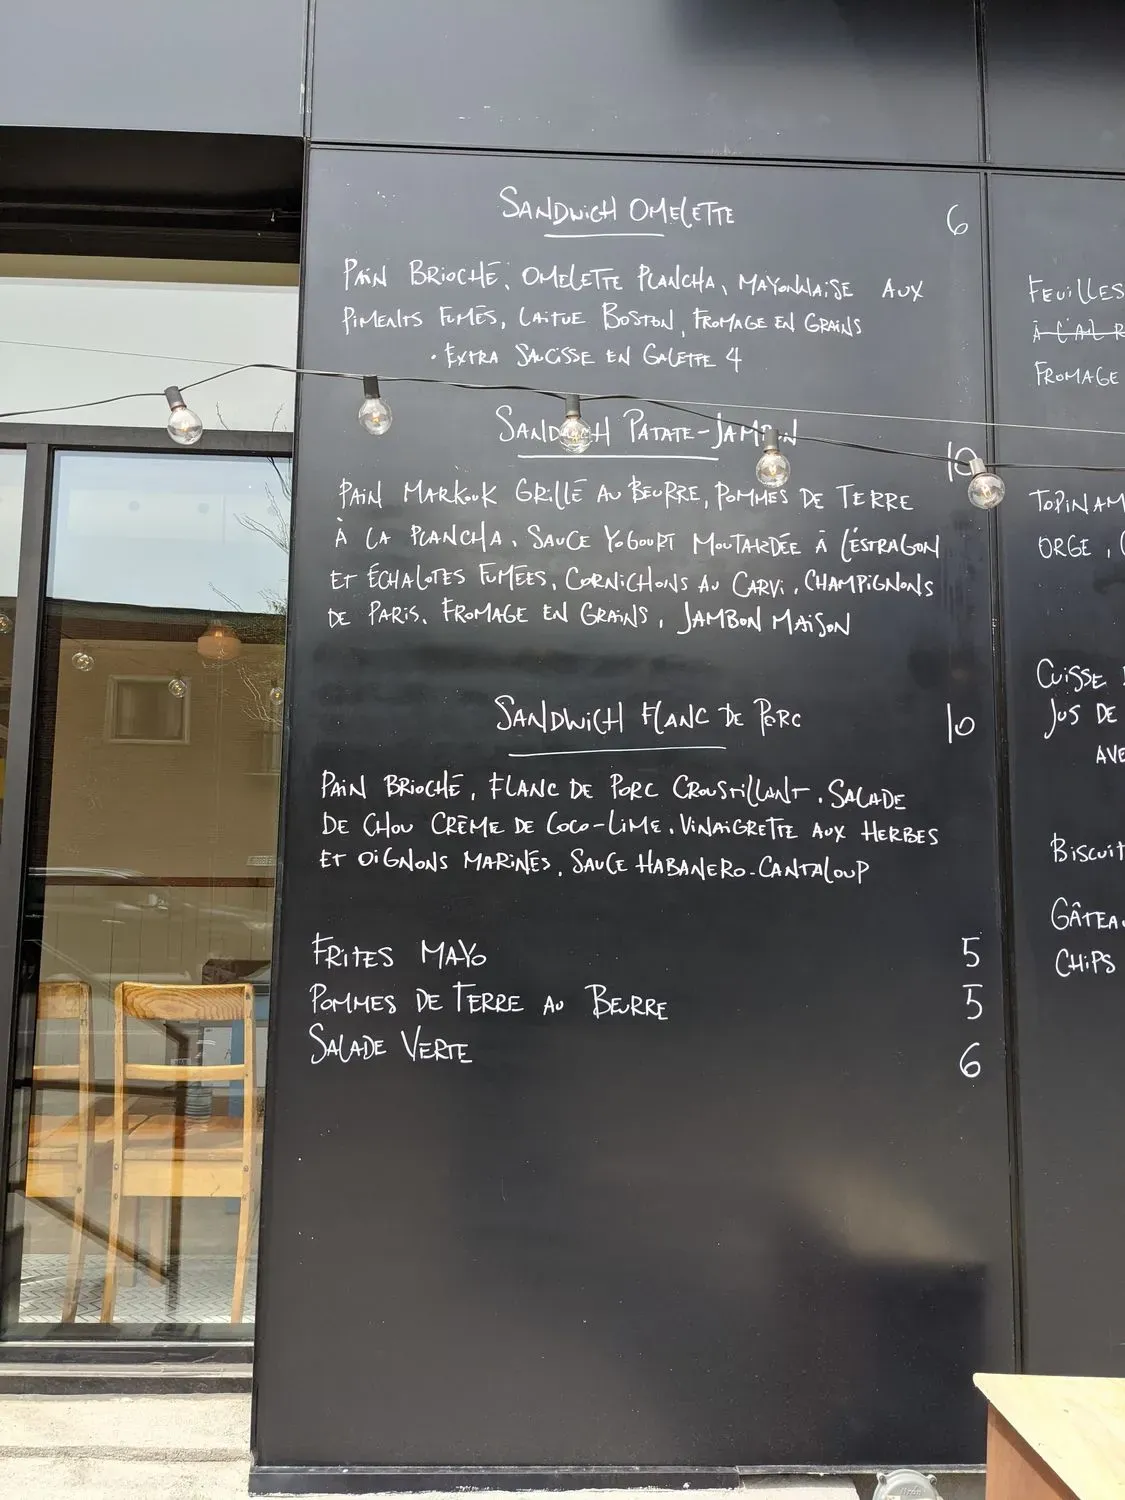 SANDWICH OMELETTE 6
PAIN BRIOCHÉ, OMELETTE PLANCHA, MAYONNAISE AUX
PIMENTS FUMÉS, LAITUE BOSTON, FROMAGE EN GRAINS
· EXTRA SAUCISSE EN GALETTE 4
SANDWICH PATATE-JAMBON 10
PAIN MARKOUK GRILLÉ AU BEURRE, POMMES DE TERRE
À LA PLANCHA, SAUCE YOGOURT MOUTARDÉE À L'ESTRAGON
ET ÉCHALOTES FUMÉES, CORNICHONS AU CARVI, CHAMPIGNONS
DE PARIS, FROMAGE EN GRAINS, JAMBON MAISON
SANDWICH FLANC DE PORC 10
PAIN BRIOCHÉ, FLANC DE PORC CROUSTILLANT, SALADE
DE CHOU CRÈME DE COCO-LIME, VINAIGRETTE AUX HERBES
ET OIGNONS MARINÉS, SAUCE HABANERO-CANTALOUP
FRITES MAYO 5
POMMES DE TERRE AU BEURRE 5
SALADE VERTE 6
FEUILLES
FROMAGE
TOPINAM
ORGE,
CUISSE
JUS DE
AVE
BISCUIT
GÂTEA
CHIPS